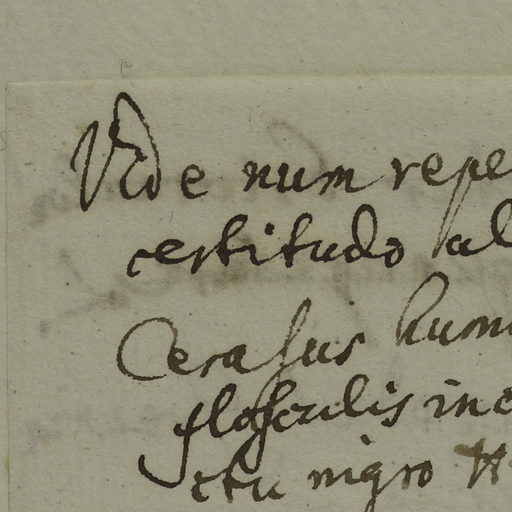 Vide num repe
certitudo al
Cerasus humi
flosculis in c
ctu nigro H